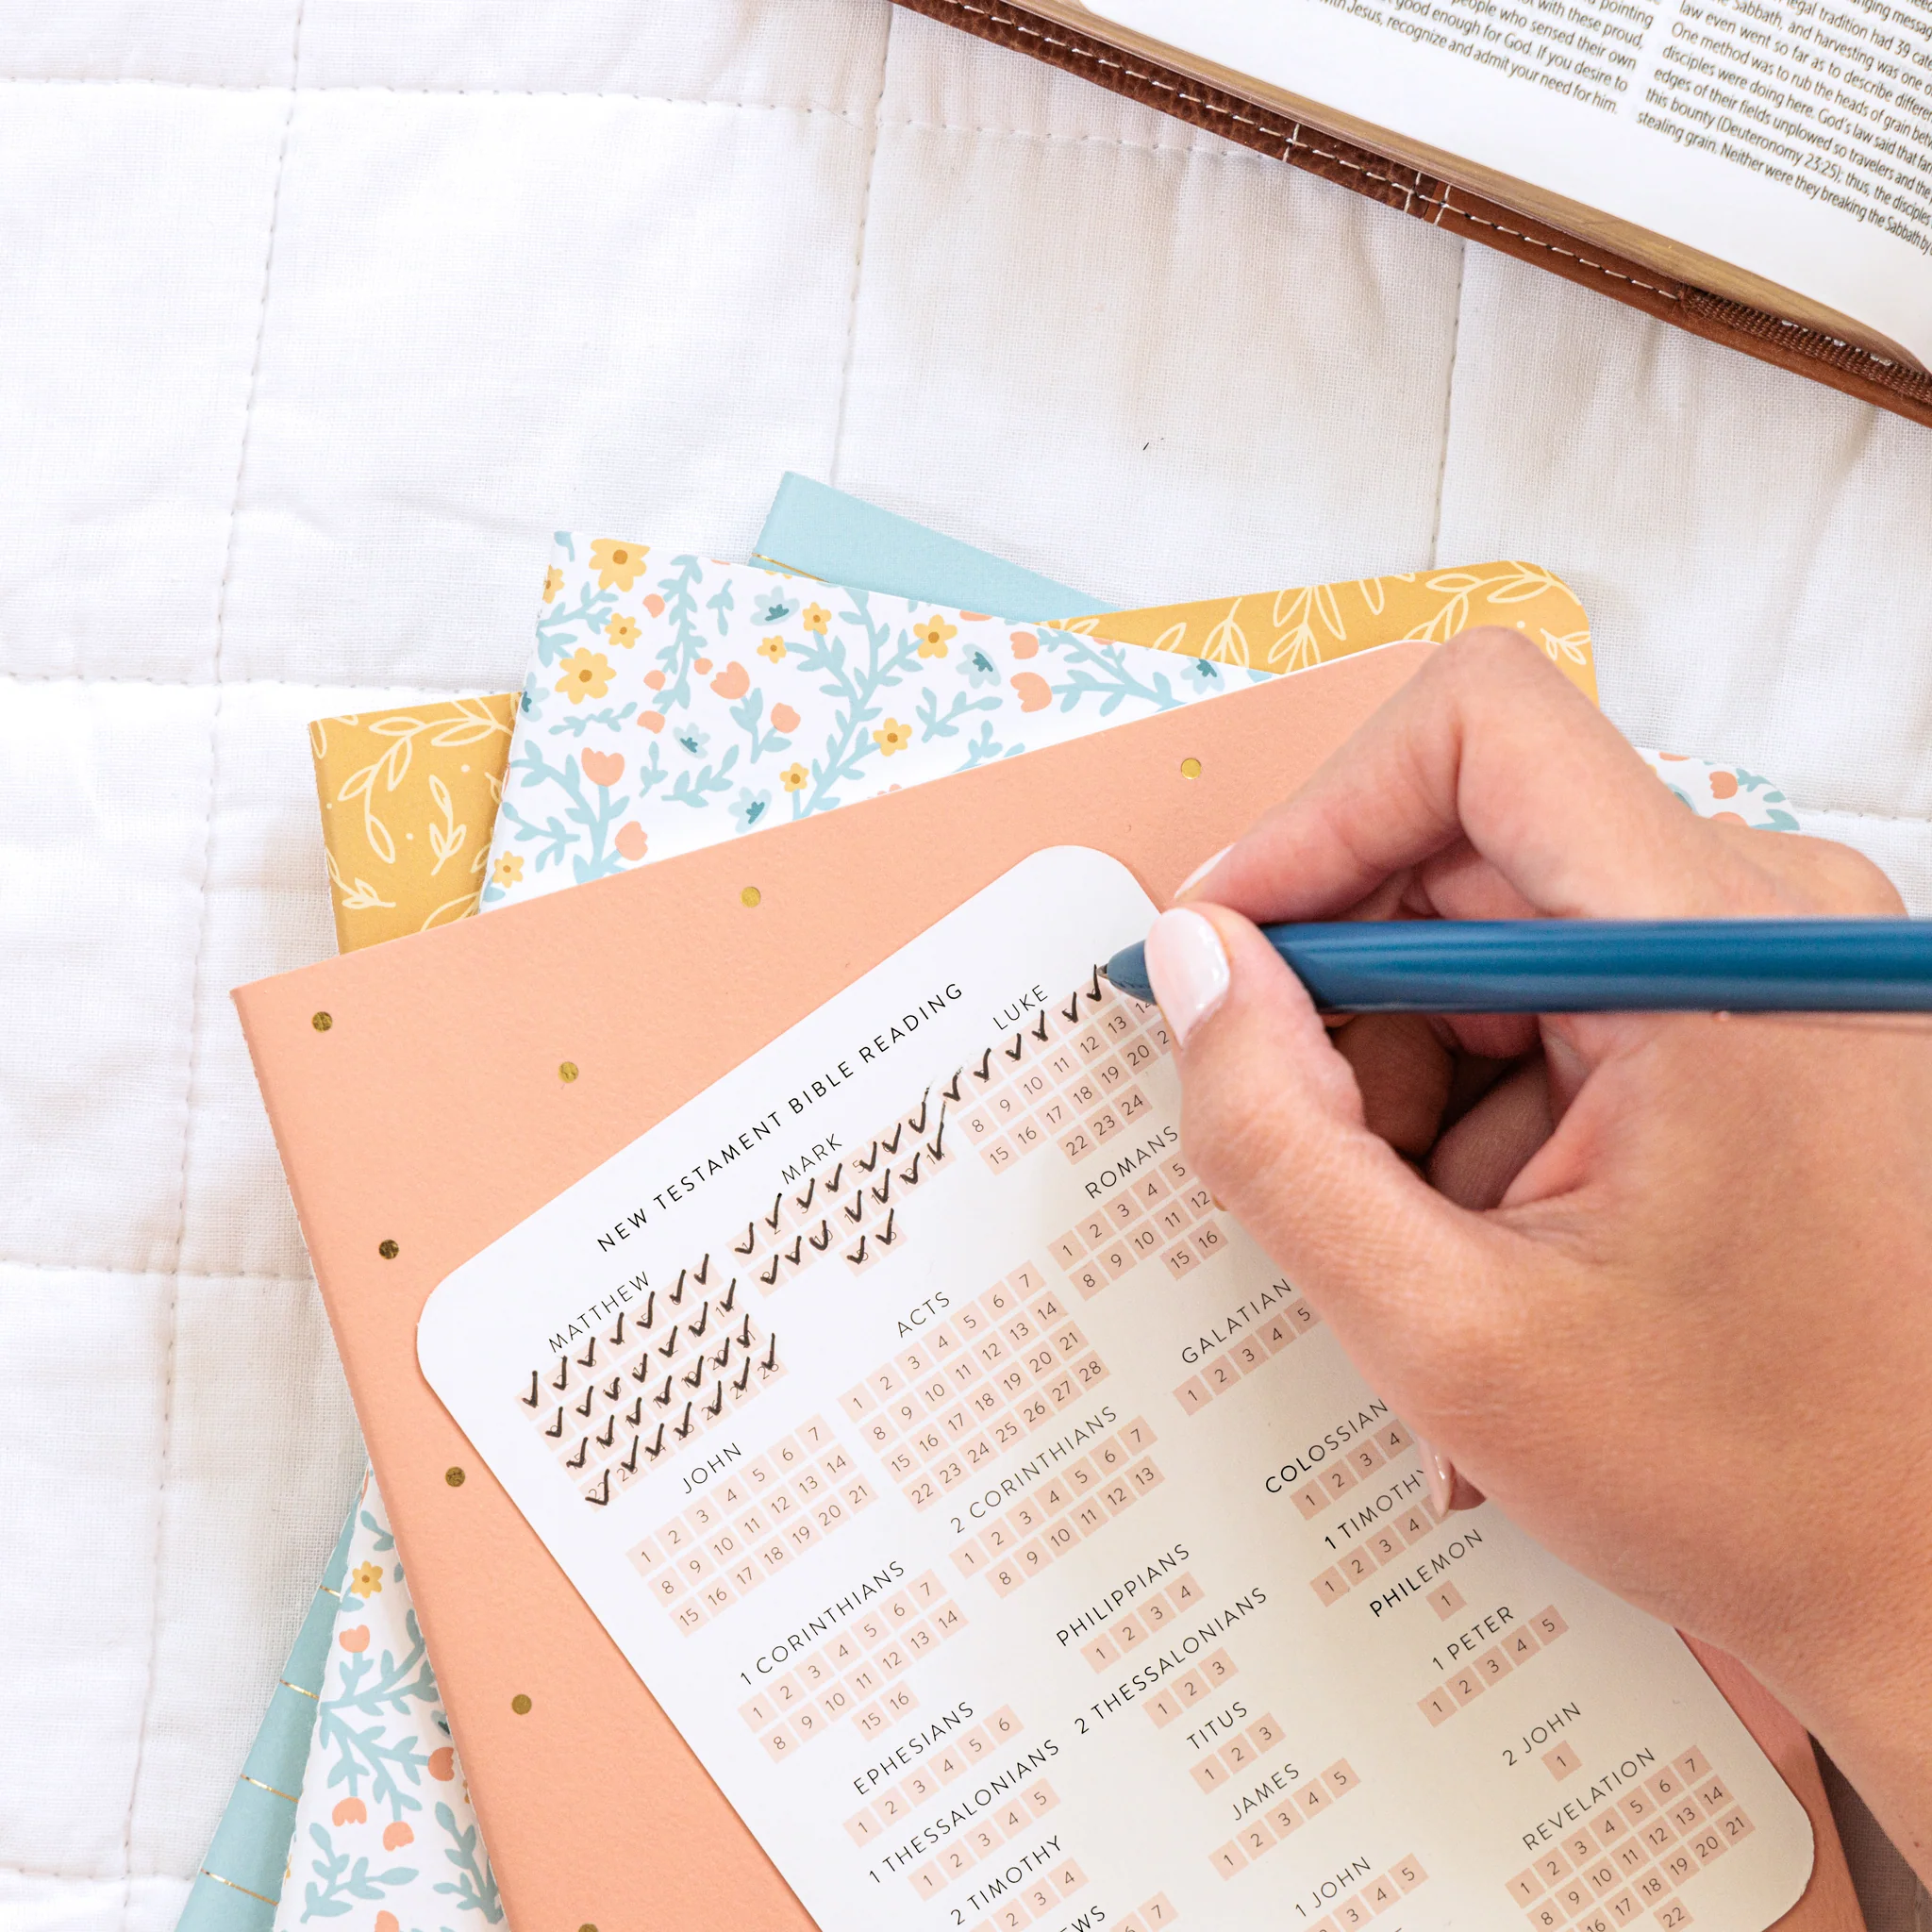 pointing
not with these proud,
people who sensed their own
good enough for God. If you desire to
with Jesus, recognize and admit your need for him.
legal tradition had 39
law even went so far as to describe
One method was to rub the heads of grain
disciples were doing here. God's law said that
edges of their fields unplowed so travelers and the
this bounty (Deuteronomy 23:25); thus, the disciples
stealing grain. Neither were they breaking the Sabbath by
NEW TESTAMENT BIBLE READING
MATTHEW
MARK
LUKE
8 9 10 11 12 13
15 16 17 18 19 20
22 23 24
JOHN
1 2 3 4 5 6 7
8 9 10 11 12 13 14
15 16 17 18 19 20 21
ACTS
1 2 3 4 5 6 7
8 9 10 11 12 13 14
15 16 17 18 19 20 21
22 23 24 25 26 27 28
ROMANS
1 2 3 4 5
8 9 10 11 12
15 16
1 CORINTHIANS
1 2 3 4 5 6 7
8 9 10 11 12 13 14
15 16
2 CORINTHIANS
1 2 3 4 5 6 7
8 9 10 11 12 13
GALATIAN
1 2 3 4 5
EPHESIANS
1 2 3 4 5 6
PHILIPPIANS
1 2 3 4
COLOSSIAN
1 2 3 4
1 THESSALONIANS
1 2 3 4 5
2 THESSALONIANS
1 2 3
1 TIMOTHY
1 2 3 4
2 TIMOTHY
2 3 4
TITUS
1 2 3
PHILEMON
1
JAMES
1 2 3 4 5
1 PETER
1 2 3 4 5
6 7
1 JOHN
3 4 5
2 JOHN
1
REVELATION
1 2 3 4 5 6 7
8 9 10 11 12 13 14
16 17 18 19 20 21
22